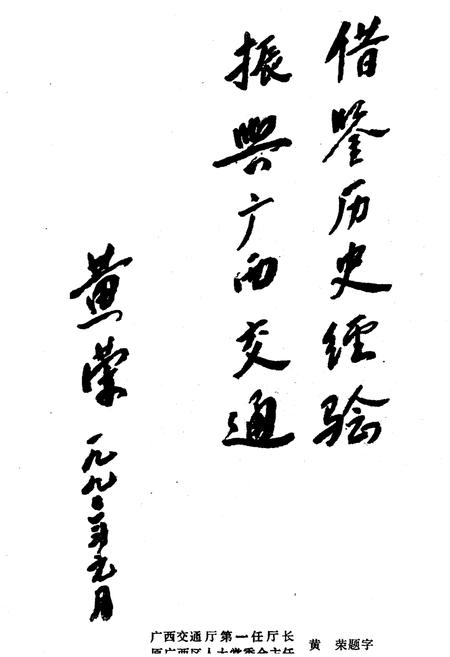 借鉴历史经验
振興广西交通
黄荣
一九九二年元月
广西交通厅第一任厅长
原广西区人大常委会主任
黄 荣题字